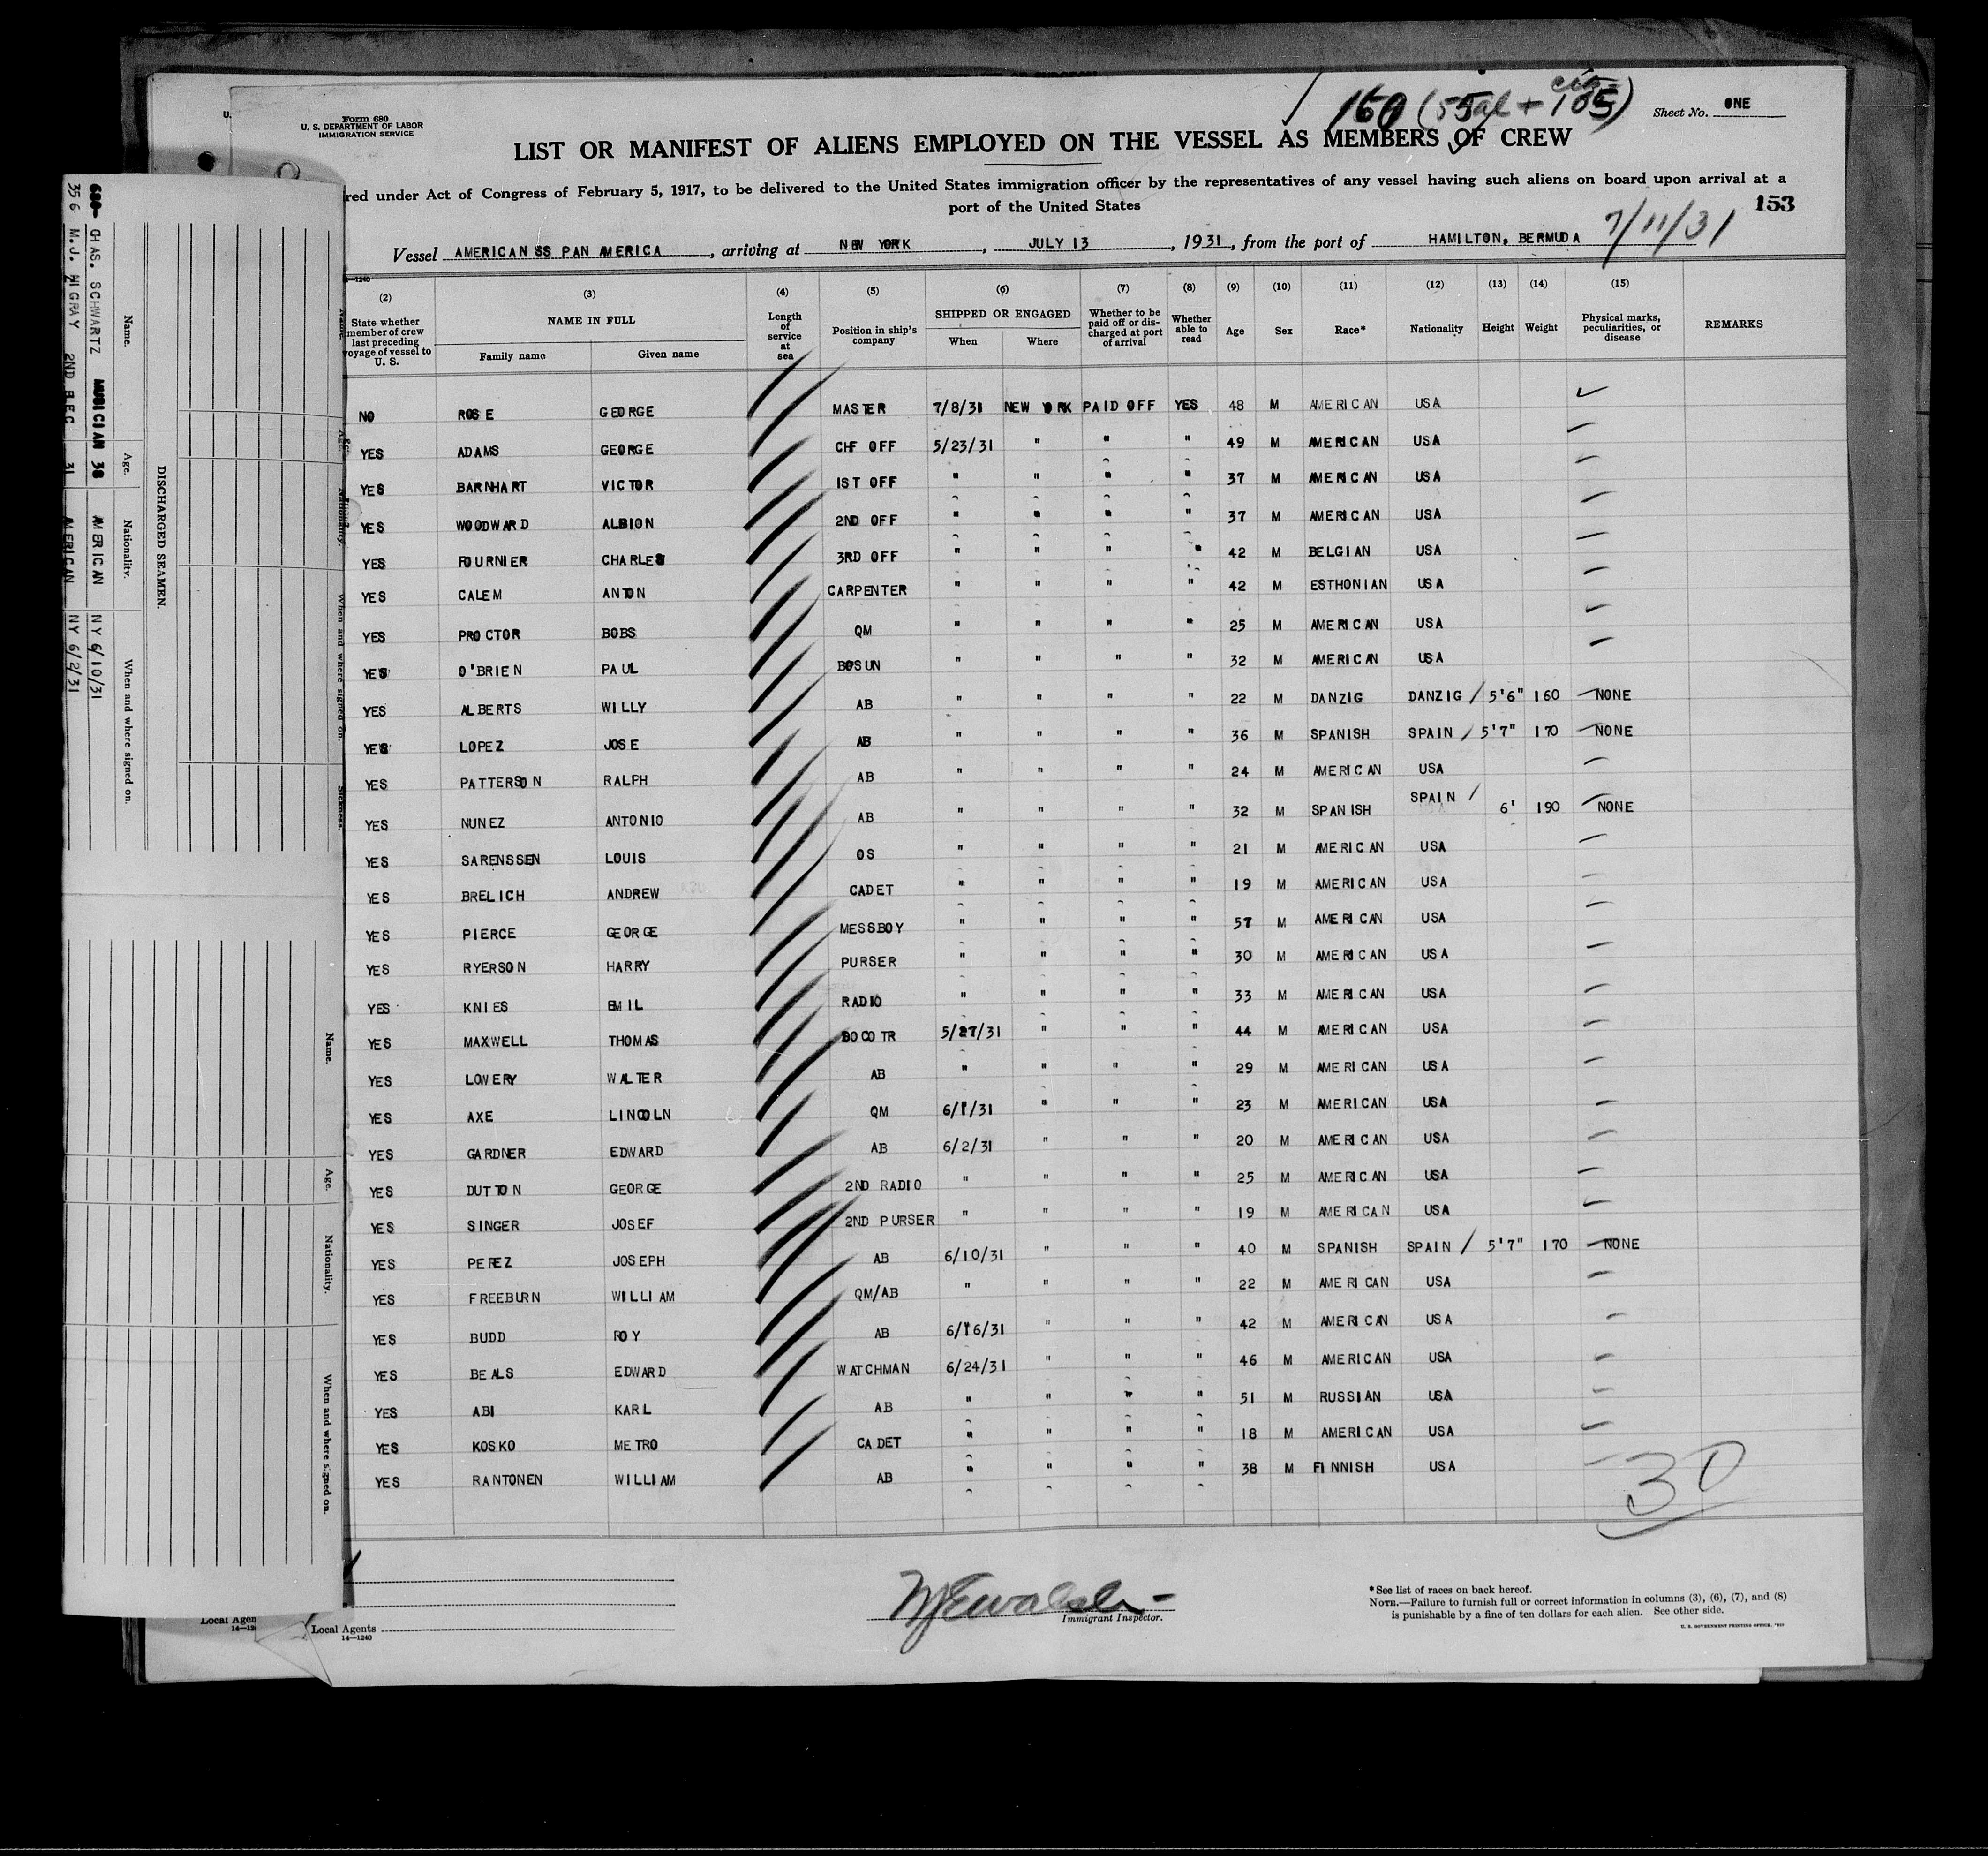 Form 680
U. S. DEPARTMENT OF LABOR
IMMIGRATION SERVICE
160 (55 al + 105)
Sheet No. ONE
LIST OR MANIFEST OF ALIENS EMPLOYED ON THE VESSEL AS MEMBERS OF CREW
red under Act of Congress of February 5, 1917, to be delivered to the United States immigration officer by the representatives of any vessel having such aliens on board upon arrival at a
port of the United States
153
Vessel AMERICAN SS PAN AMERICA, arriving at NEW YORK, JULY 13, 1931, from the port of HAMILTON, BERMUDA 7/11/31
(2) (3) (4) (5) (6) (7) (8) (9) (10) (11) (12) (13) (14) (15)
State whether member of crew last preceding voyage of vessel to U. S. NAME IN FULL Family name Given name Length of service at sea Position in ship's company SHIPPED OR ENGAGED When Where Whether to be paid off or discharged at port of arrival Whether able to read Age Sex Race* Nationality Height Weight Physical marks, peculiarities, or disease REMARKS
NO ROSE GEORGE MASTER 7/8/31 NEW YORK PAID OFF YES 48 M AMERICAN USA
YES ADAMS GEORGE CHF OFF 5/23/31 " " " 49 M AMERICAN USA
YES BARNHART VICTOR 1ST OFF " " " " 37 M AMERICAN USA
YES WOODWARD ALBION 2ND OFF " " " " 37 M AMERICAN USA
YES FOURNIER CHARLES 3RD OFF " " " " 42 M BELGIAN USA
YES CALEM ANTON CARPENTER " " " " 42 M ESTHONIAN USA
YES PROCTOR BOBS QM " " " " 25 M AMERICAN USA
YES O'BRIEN PAUL BOSUN " " " " 32 M AMERICAN USA
YES ALBERTS WILLY AB " " " " 22 M DANZIG DANZIG / 5'6" 160 NONE
YES LOPEZ JOSE AB " " " " 36 M SPANISH SPAIN / 5'7" 170 NONE
YES PATTERSON RALPH AB " " " " 24 M AMERICAN USA
YES NUNEZ ANTONIO AB " " " " 32 M SPANISH SPAIN / 6' 190 NONE
YES SARENSSEN LOUIS OS " " " " 21 M AMERICAN USA
YES BRELICH ANDREW CADET " " " " 19 M AMERICAN USA
YES PIERCE GEORGE MESSBOY " " " " 57 M AMERICAN USA
YES RYERSON HARRY PURSER " " " " 30 M AMERICAN USA
YES KNIES EMIL RADIO " " " " 33 M AMERICAN USA
YES MAXWELL THOMAS BOCOTR 5/27/31 " " " 44 M AMERICAN USA
YES LOWERY WALTER AB " " " " 29 M AMERICAN USA
YES AXE LINCOLN QM 6/1/31 " " " 23 M AMERICAN USA
YES GARDNER EDWARD AB 6/2/31 " " " 20 M AMERICAN USA
YES DUTTON GEORGE 2ND RADIO " " " " 25 M AMERICAN USA
YES SINGER JOSEF 2ND PURSER " " " " 19 M AMERICAN USA
YES PEREZ JOSEPH AB 6/10/31 " " " 40 M SPANISH SPAIN / 5'7" 170 NONE
YES FREEBURN WILLIAM QM/AB " " " " 22 M AMERICAN USA
YES BUDD ROY AB 6/16/31 " " " 42 M AMERICAN USA
YES BEALS EDWARD WATCHMAN 6/24/31 " " " 46 M AMERICAN USA
YES ABI KARL AB " " " " 51 M RUSSIAN USA
YES KOSKO METRO CADET " " " " 18 M AMERICAN USA
YES RANTONEN WILLIAM AB " " " " 38 M FINNISH USA
30
Immigrant Inspector.
*See list of races on back hereof.
NOTE.—Failure to furnish full or correct information in columns (3), (6), (7), and (8)
is punishable by a fine of ten dollars for each alien. See other side.
U. S. GOVERNMENT PRINTING OFFICE
Local Agents
14—1240
Local Agen
DISCHARGED SEAMEN.
Name. Age. Nationality. When and where signed on.
CHAS. SCHWARTZ MUSICIAN 38 AMERICAN NY 6/10/31
356 M.J. GRAY 31 AMERICAN NY 6/2/31
Nationality. When and where signed on. Sickness.
Name. Age. Nationality. When and where signed on.